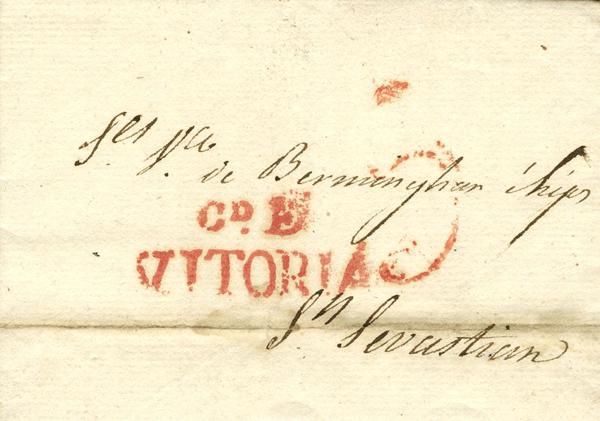 Sres Vda
de Bermingham é hijos
Cº D
VITORIA
Sn Sevastian